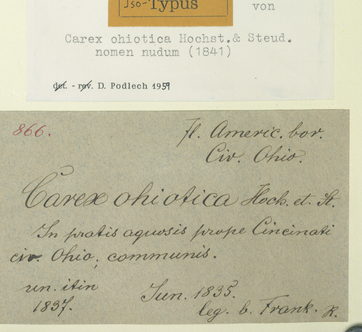 Iso- Typus
von
Carex ohiotica Hochst.& Steud.
nomen nudum (1841)
det. - rev. D. Podlech 1959
866.
Fl. Americ. bor.
Civ. Ohio.
Carex ohiotica Hoch. et. St.
In pratis aquosis prope Cincinati
civ. Ohio, communis.
un. itin
1837.
Jun. 1835.
leg. b. Frank. R.